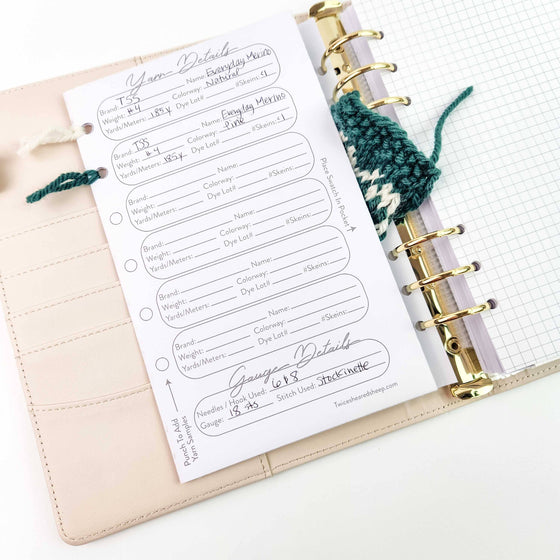 Yarn Details
Brand: TSS Name: Everyday Merino
Weight: #4 Colorway: Natural
Yards/Meters: 185y Dye Lot# #Skeins: 1
Brand: TSS Name: Everyday Merino
Weight: #4 Colorway: Pine
Yards/Meters: 185y Dye Lot# #Skeins: 1
Brand: Name:
Weight: Colorway:
Yards/Meters: Dye Lot# #Skeins:
Brand: Name:
Weight: Colorway:
Yards/Meters: Dye Lot# #Skeins:
Brand: Name:
Weight: Colorway:
Yards/Meters: Dye Lot# #Skeins:
Brand: Name:
Weight: Colorway:
Yards/Meters: Dye Lot# #Skeins:
Place Swatch In Pocket
Punch To Add
Yarn Samples
Gauge Details
Needles / Hook Used: 6 & 8
Gauge: 18 sts Stitch Used: Stockinette
Twiceshearedsheep.com